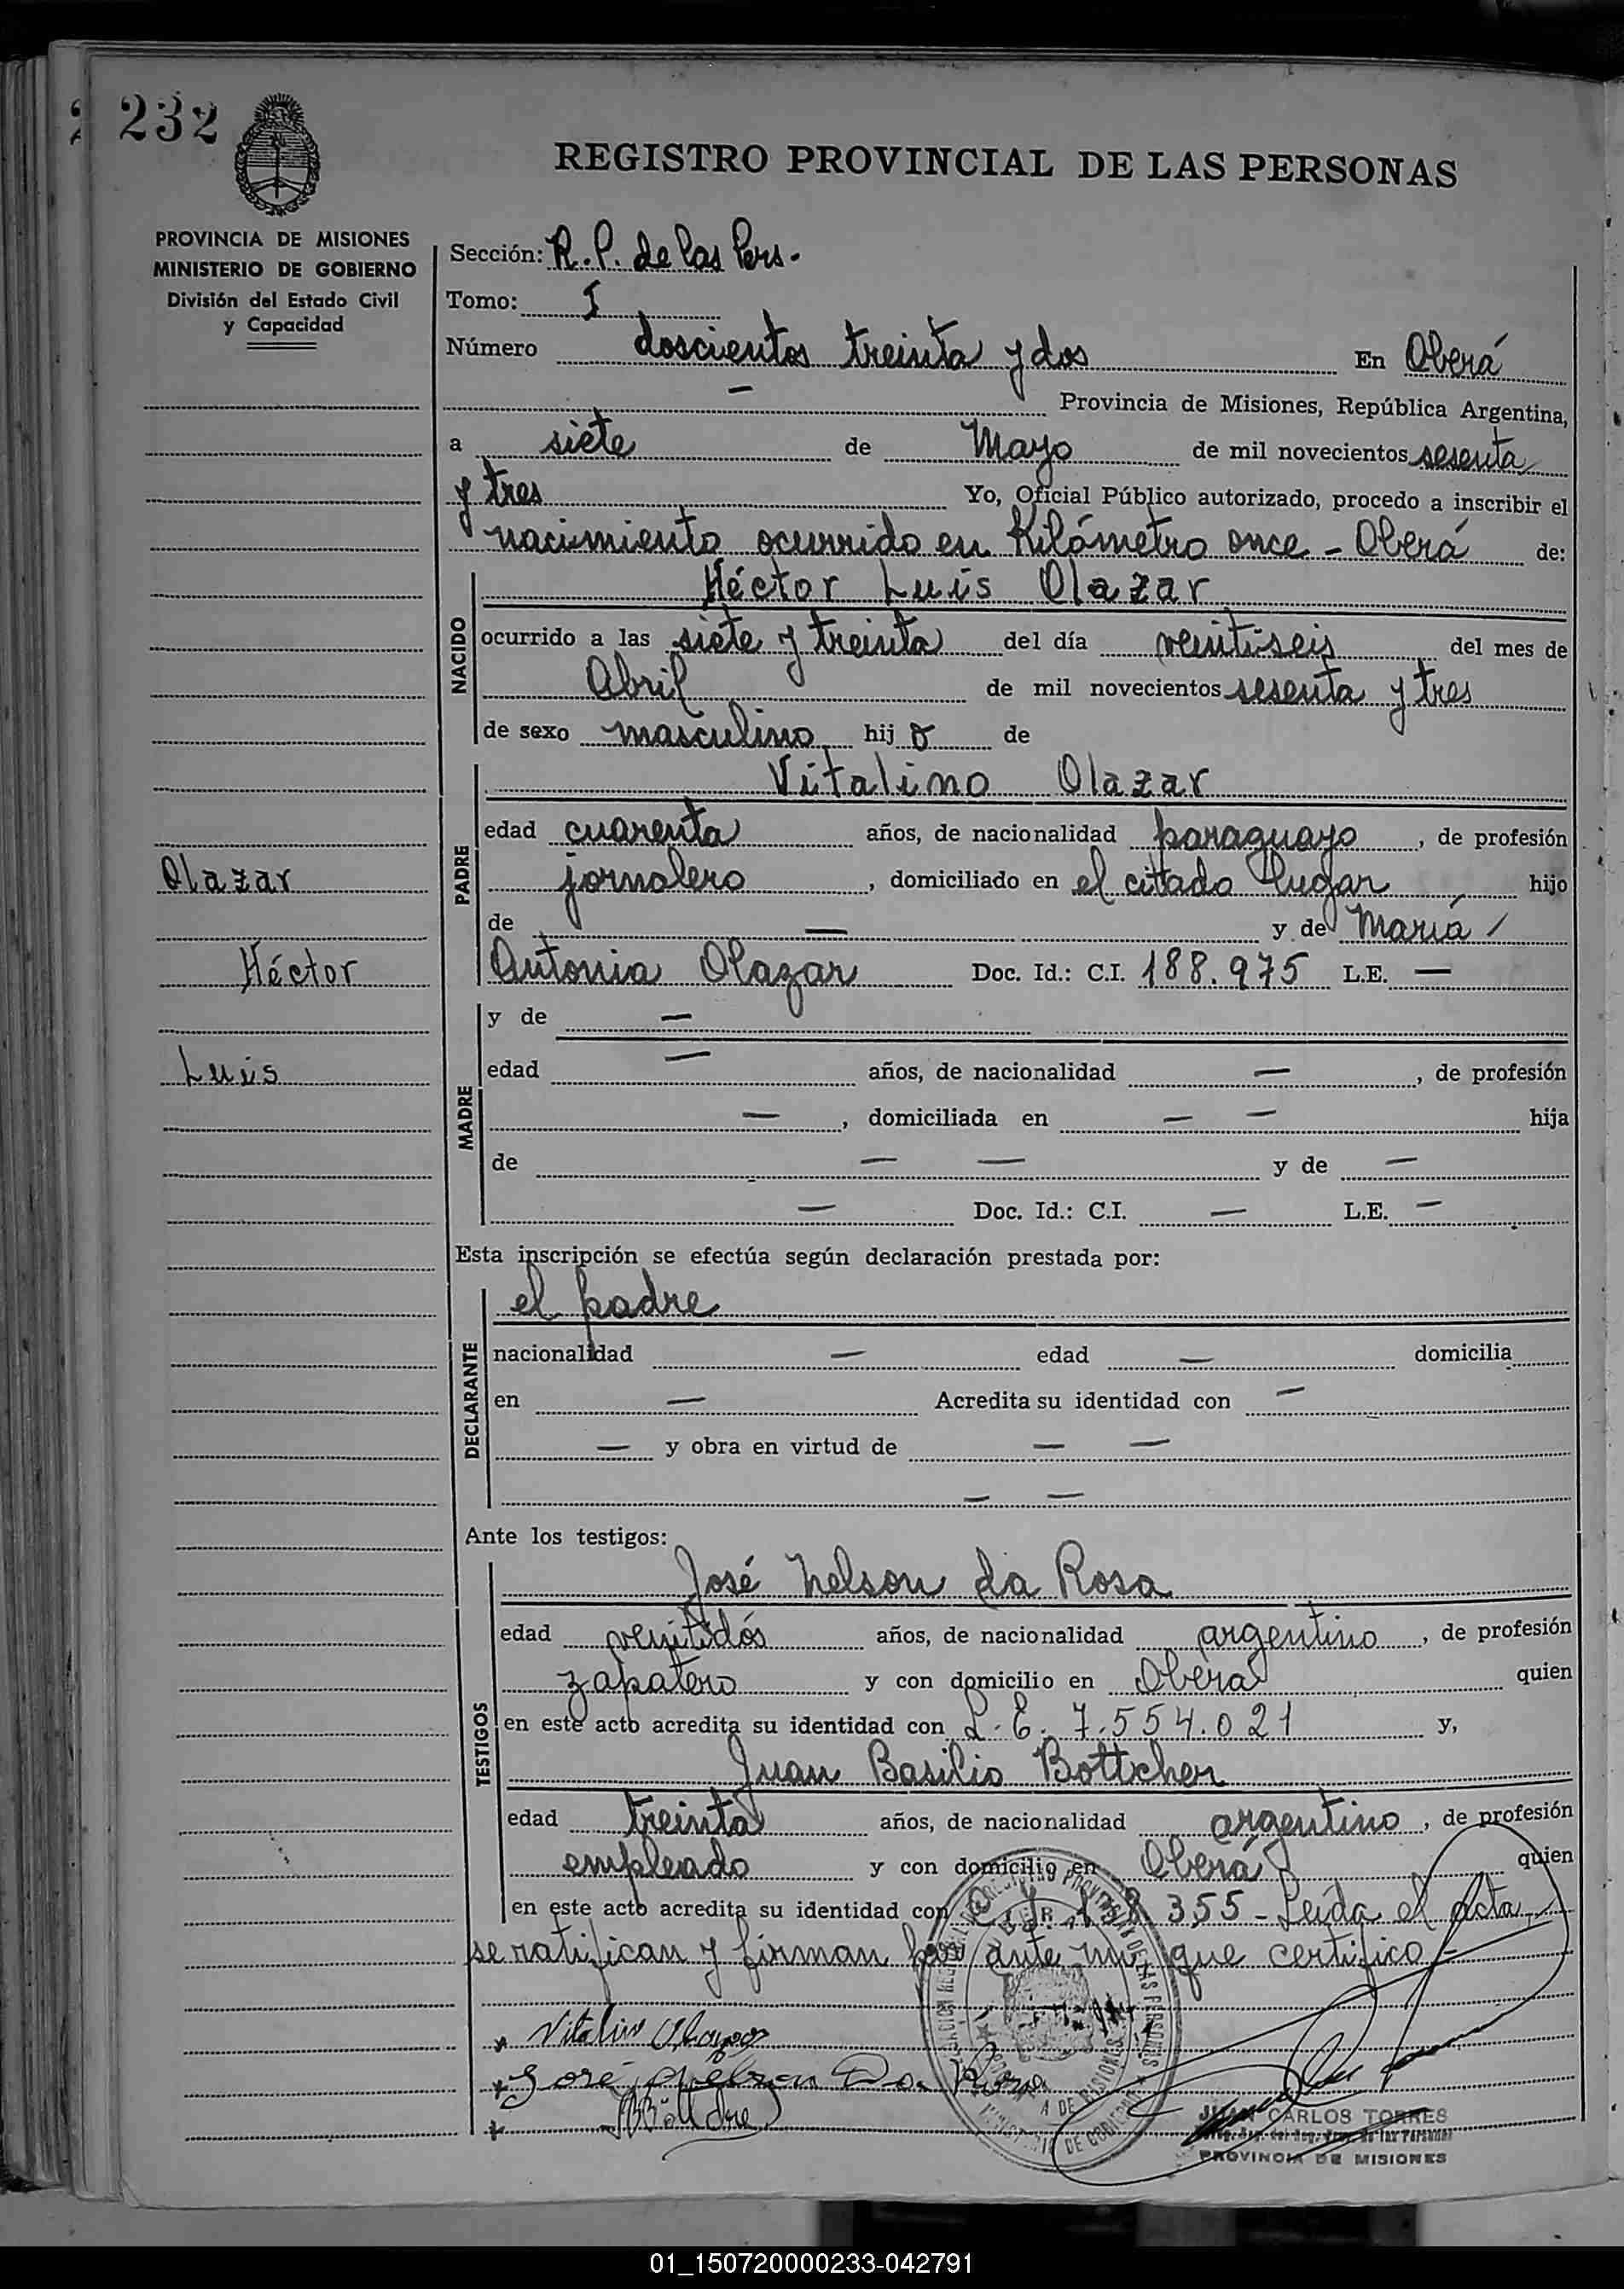 232
REGISTRO PROVINCIAL DE LAS PERSONAS
PROVINCIA DE MISIONES
MINISTERIO DE GOBIERNO
División del Estado Civil
y Capacidad
Sección: R. P. de las Pers.
Tomo: I
Número doscientos treinta y dos En Oberá
— Provincia de Misiones, República Argentina,
a siete de Mayo de mil novecientos sesenta
y tres Yo, Oficial Público autorizado, procedo a inscribir el
nacimiento ocurrido en Kilómetro once - Oberá de:
NACIDO
Héctor Luis Olazar
ocurrido a las siete y treinta del día veintiseis del mes de
Abril de mil novecientos sesenta y tres
de sexo masculino hij o de
PADRE
Vitalino Olazar
edad cuarenta años, de nacionalidad paraguayo, de profesión
jornalero, domiciliado en el citado lugar hijo
de — y de María
Antonia Olazar Doc. Id.: C.I. 188.975 L.E. —
Olazar
Héctor
Luis
MADRE
y de —
edad — años, de nacionalidad —, de profesión
—, domiciliada en — — hija
de — — y de —
— Doc. Id.: C.I. — L.E. —
Esta inscripción se efectúa según declaración prestada por:
DECLARANTE
el padre
nacionalidad — edad — domicilia
en — Acredita su identidad con —
— y obra en virtud de — —
— —
Ante los testigos:
TESTIGOS
José Nelson da Rosa
edad veintidós años, de nacionalidad argentino, de profesión
zapatero y con domicilio en Oberá quien
en este acto acredita su identidad con L. E. 7.554.021 y,
Juan Basilio Bottcher
edad treinta años, de nacionalidad argentino, de profesión
empleado y con domicilio en Oberá quien
en este acto acredita su identidad con 355 - Leída el acta,
se ratifican y firman por ante mí, que certifico.-
Vitalino Olazar
José Nelson Da Rosa
JUAN CARLOS TORRES
PROVINCIA DE MISIONES
01_150720000233-042791